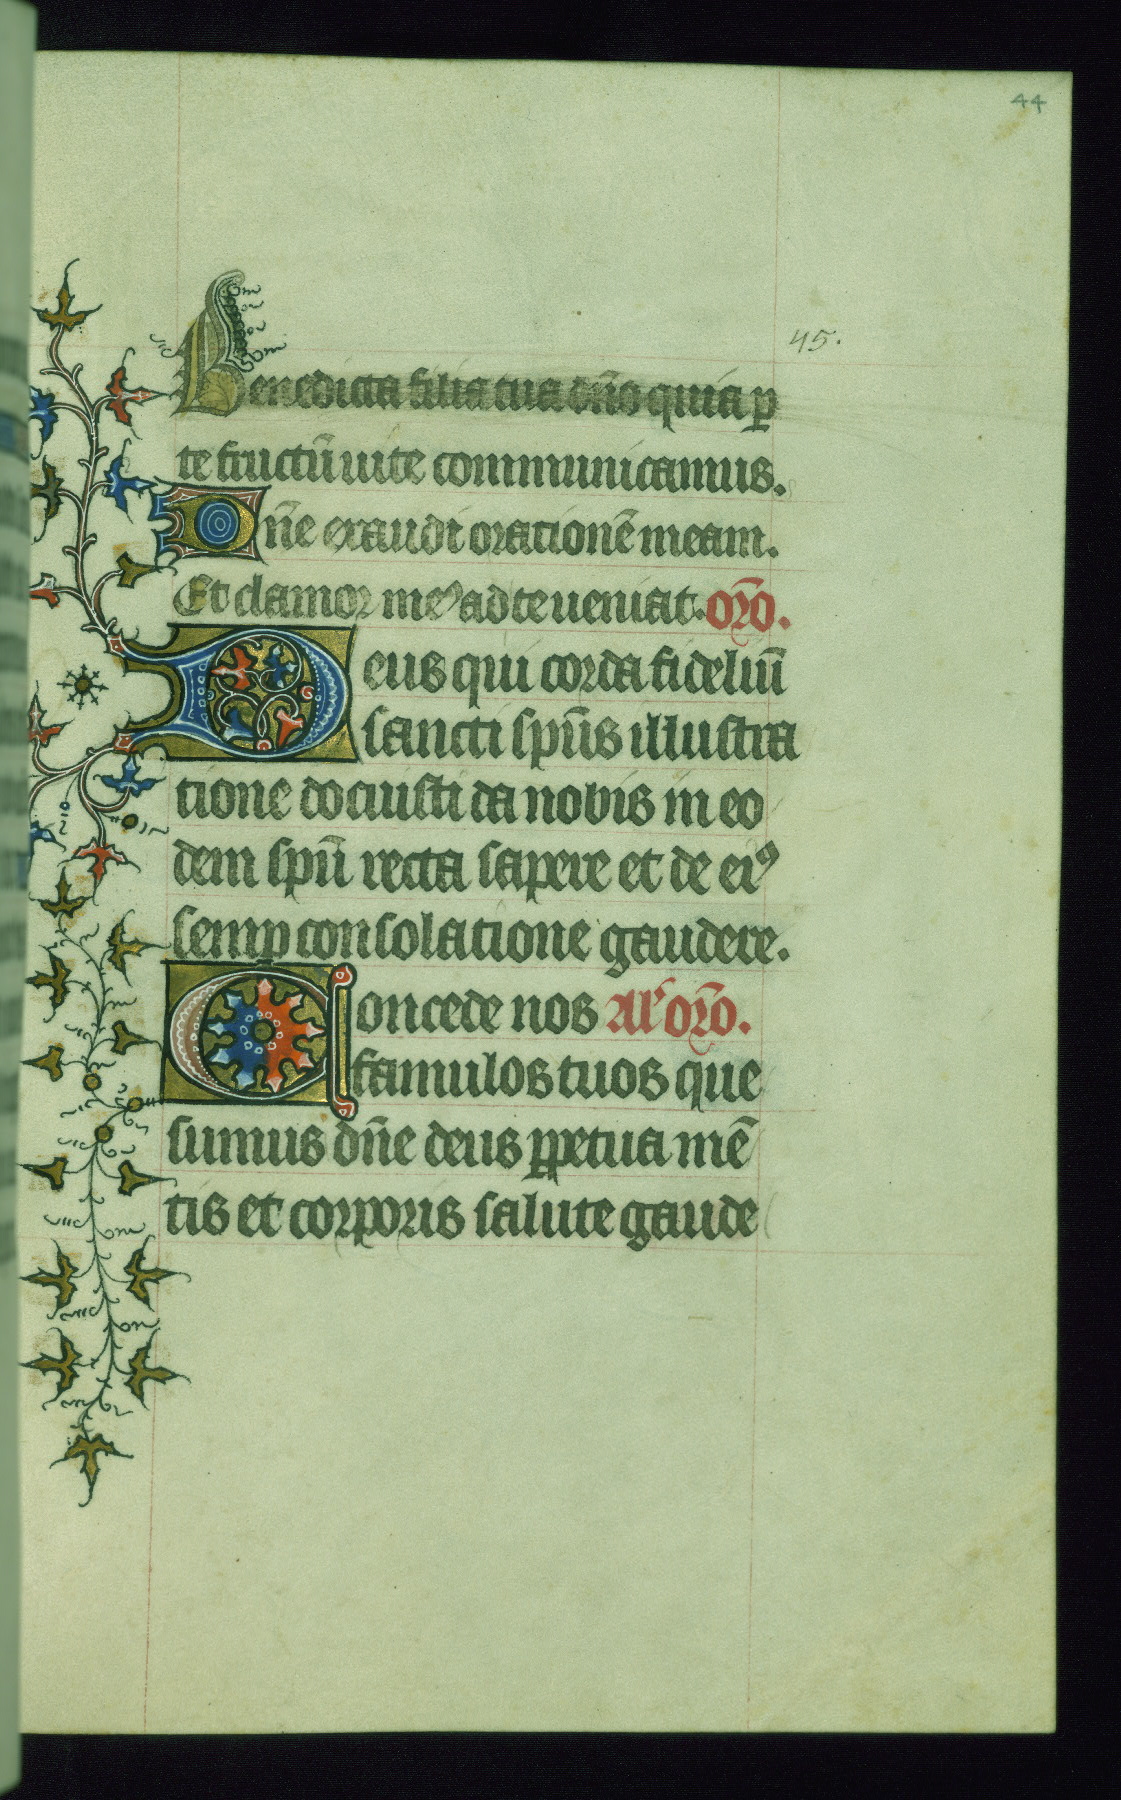 44
45.
Benedicta filia tua dn̄o quia ꝑ
te fructū uite communicamus.
Dn̄e exaudi orationē meam.
Et clamor meꝰ ad te ueniat. or̄o.
Deus qui corda fideliū
sancti sp̄us illustra
tione docuisti da nobis in eo
dem sp̄u recta sapere et de eiꝰ
semꝑ consolatione gaudere.
Concede nos Al' or̄o.
famulos tuos que
sumus dn̄e deus ꝑpetua mē
tis et corporis salute gaude